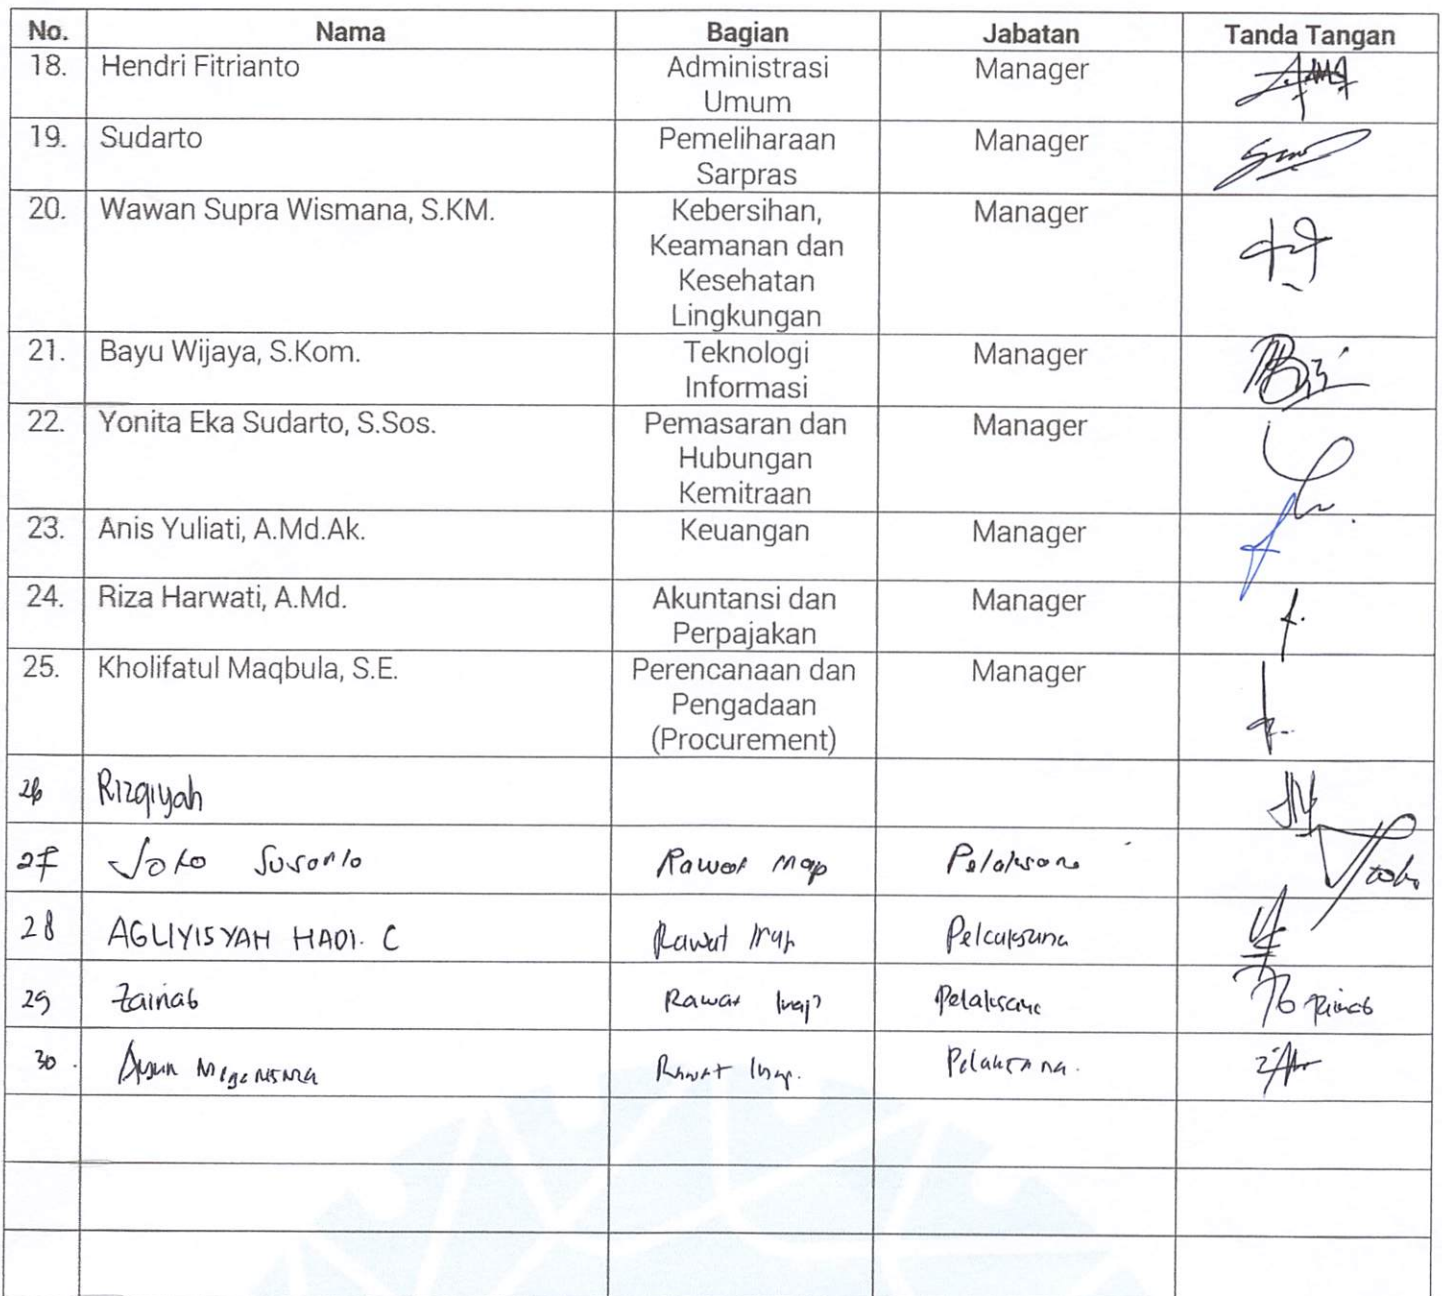 No. Nama Bagian Jabatan Tanda Tangan
18. Hendri Fitrianto Administrasi Manager
Umum
19. Sudarto Pemeliharaan Manager
Sarpras
20. Wawan Supra Wismana, S.KM. Kebersihan, Manager
Keamanan dan
Kesehatan
Lingkungan
21. Bayu Wijaya, S.Kom. Teknologi Manager
Informasi
22. Yonita Eka Sudarto, S.Sos. Pemasaran dan Manager
Hubungan
Kemitraan
23. Anis Yuliati, A.Md.Ak. Keuangan Manager
24. Riza Harwati, A.Md. Akuntansi dan Manager
Perpajakan
25. Kholifatul Maqbula, S.E. Perencanaan dan Manager
Pengadaan
(Procurement)
26 Rizqiyah
27 Joko Susanto Rawat Inap Pelaksana
28 AGLIYISYAH HADI. C Rawat Inap Pelaksana
29 Zainab Rawat Inap Pelaksana Zainab
30. Rawat Inap. Pelaksana.